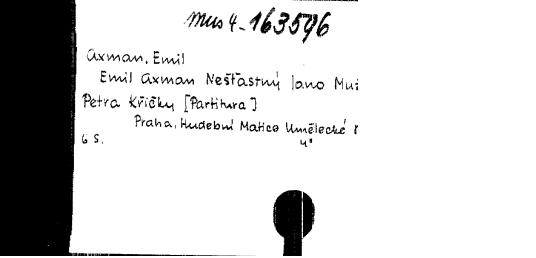 mus 4-163596
Axman, Emil
Emil Axman Nešťastný Jano Muž
Petra Křičky [Partitura]
Praha, Hudební Matice Umělecké
6 s. 4°